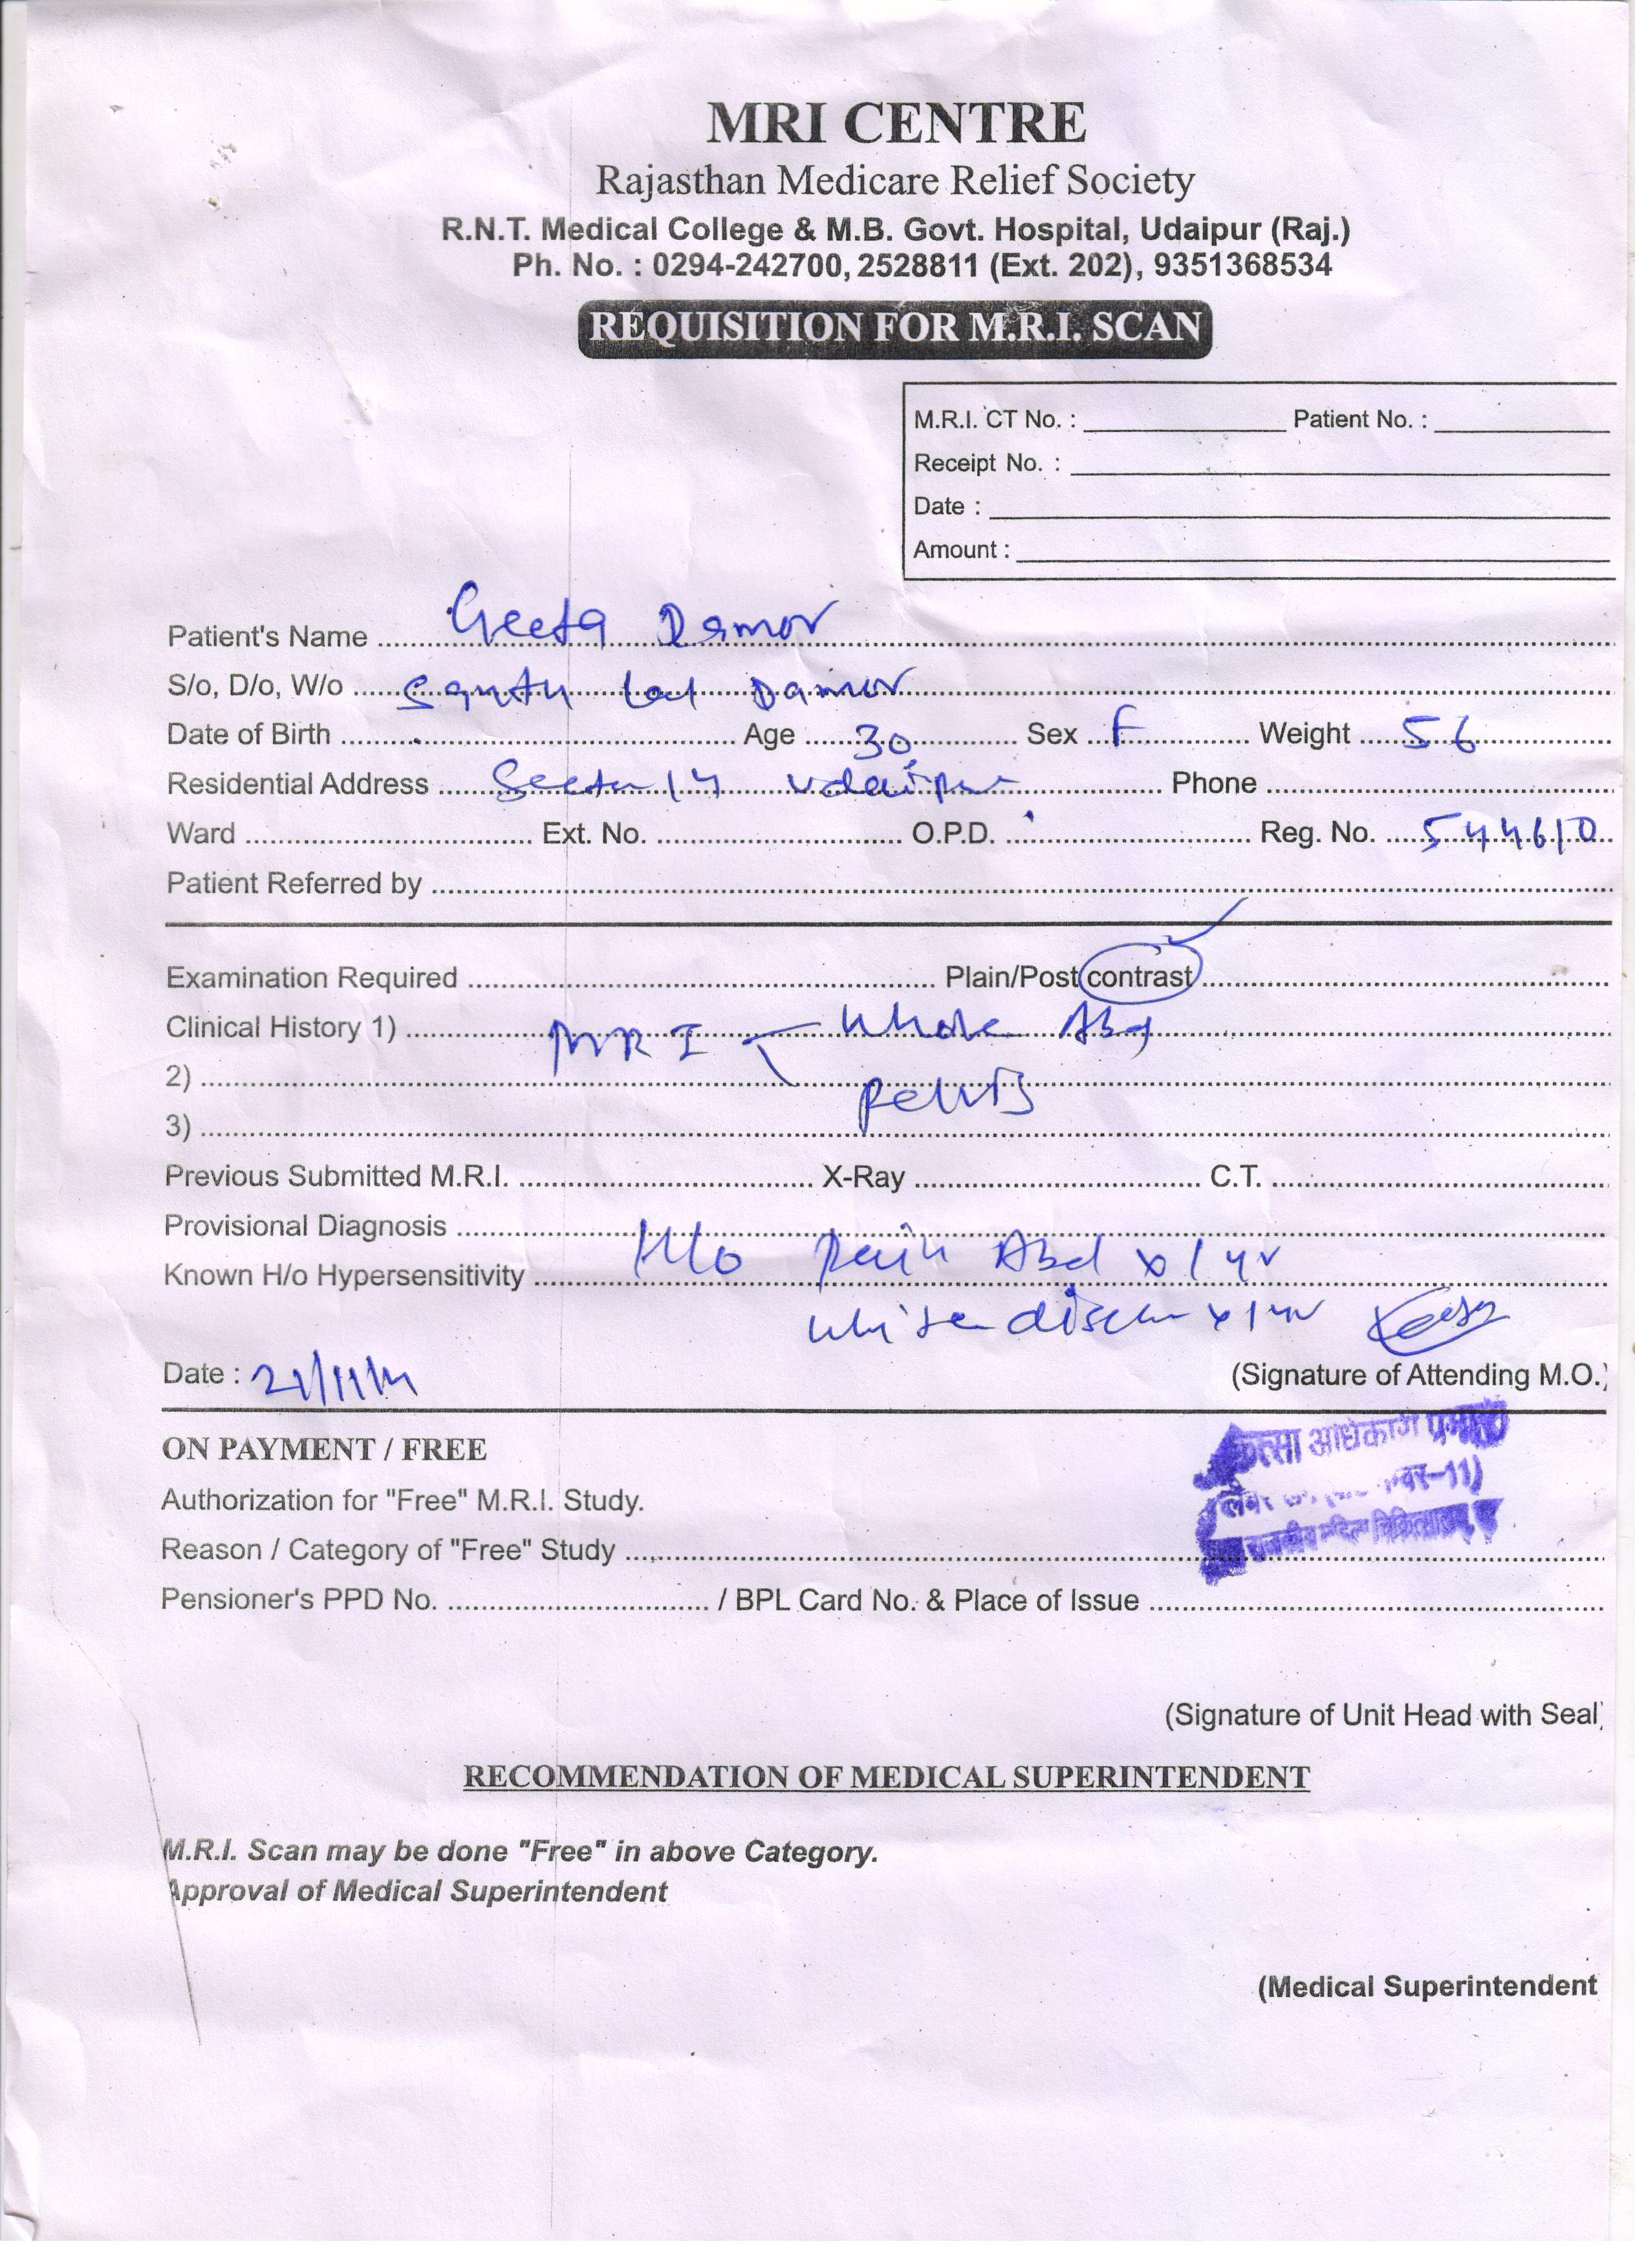 MRI CENTRE
Rajasthan Medicare Relief Society
R.N.T. Medical College & M.B. Govt. Hospital, Udaipur (Raj.)
Ph. No. : 0294-242700, 2528811 (Ext. 202), 9351368534
REQUISITION FOR M.R.I. SCAN
M.R.I. CT No. : Patient No. :
Receipt No. :
Date :
Amount :
Patient's Name Geeta Damor
S/o, D/o, W/o Lal Damor
Date of Birth Age 30 Sex F Weight 56
Residential Address 14 Udaipur Phone
Ward Ext. No. O.P.D. Reg. No. 544610
Patient Referred by
Examination Required Plain/Post contrast
Clinical History 1) MRI Whole Abd
2) Pelvis
3)
Previous Submitted M.R.I. X-Ray C.T.
Provisional Diagnosis
Known H/o Hypersensitivity H/o Pain Abd x 1 yr
white x 1 yr
Date :
(Signature of Attending M.O.)
ON PAYMENT / FREE
Authorization for "Free" M.R.I. Study.
Reason / Category of "Free" Study
Pensioner's PPD No. / BPL Card No. & Place of Issue
(Signature of Unit Head with Seal)
RECOMMENDATION OF MEDICAL SUPERINTENDENT
M.R.I. Scan may be done "Free" in above Category.
Approval of Medical Superintendent
(Medical Superintendent